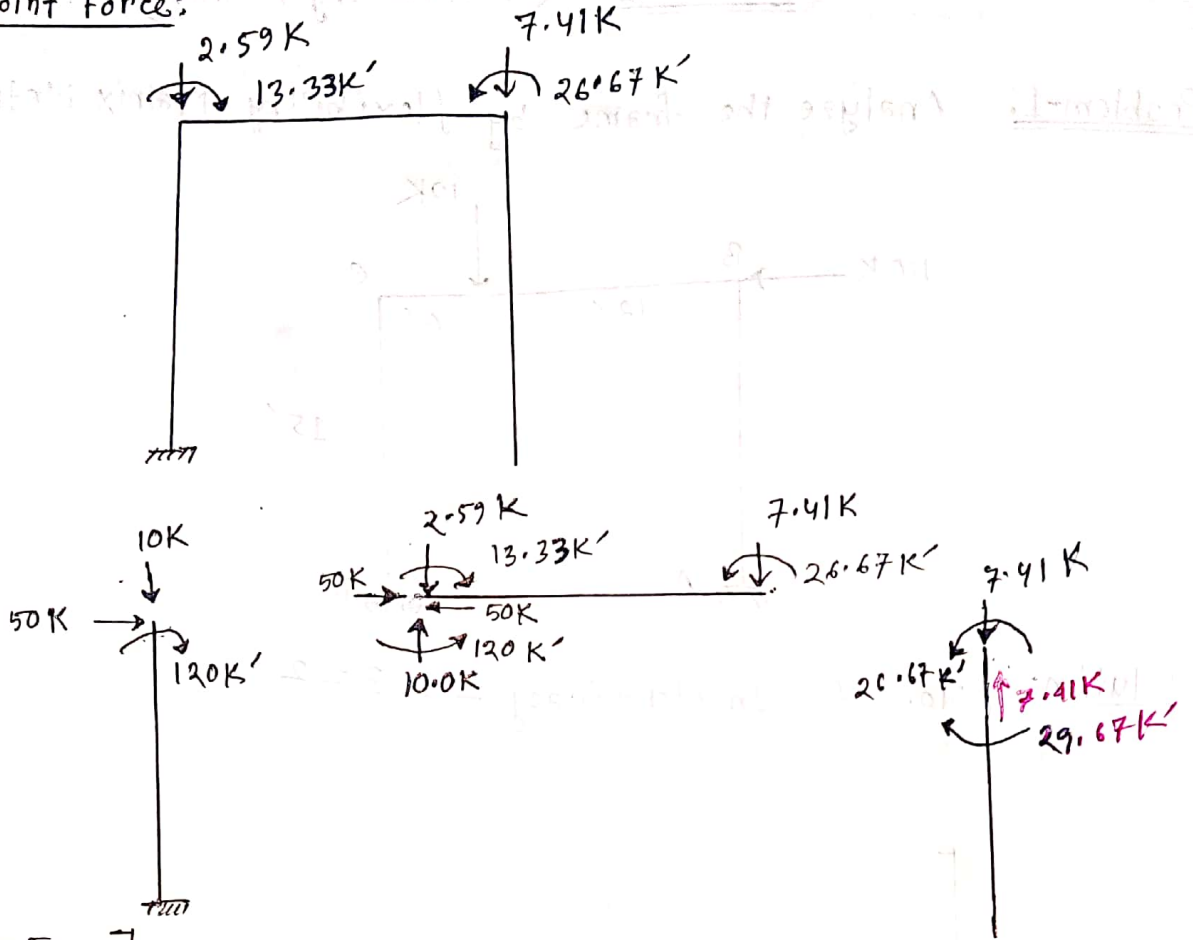 oint Force:
2.59K
7.41K
13.33K'
26.67K'
10K
50K
120K'
2.59K
13.33K'
50K
50K
120K'
10.0K
7.41K
26.67K'
7.41K
26.67K'
7.41K
29.67K'